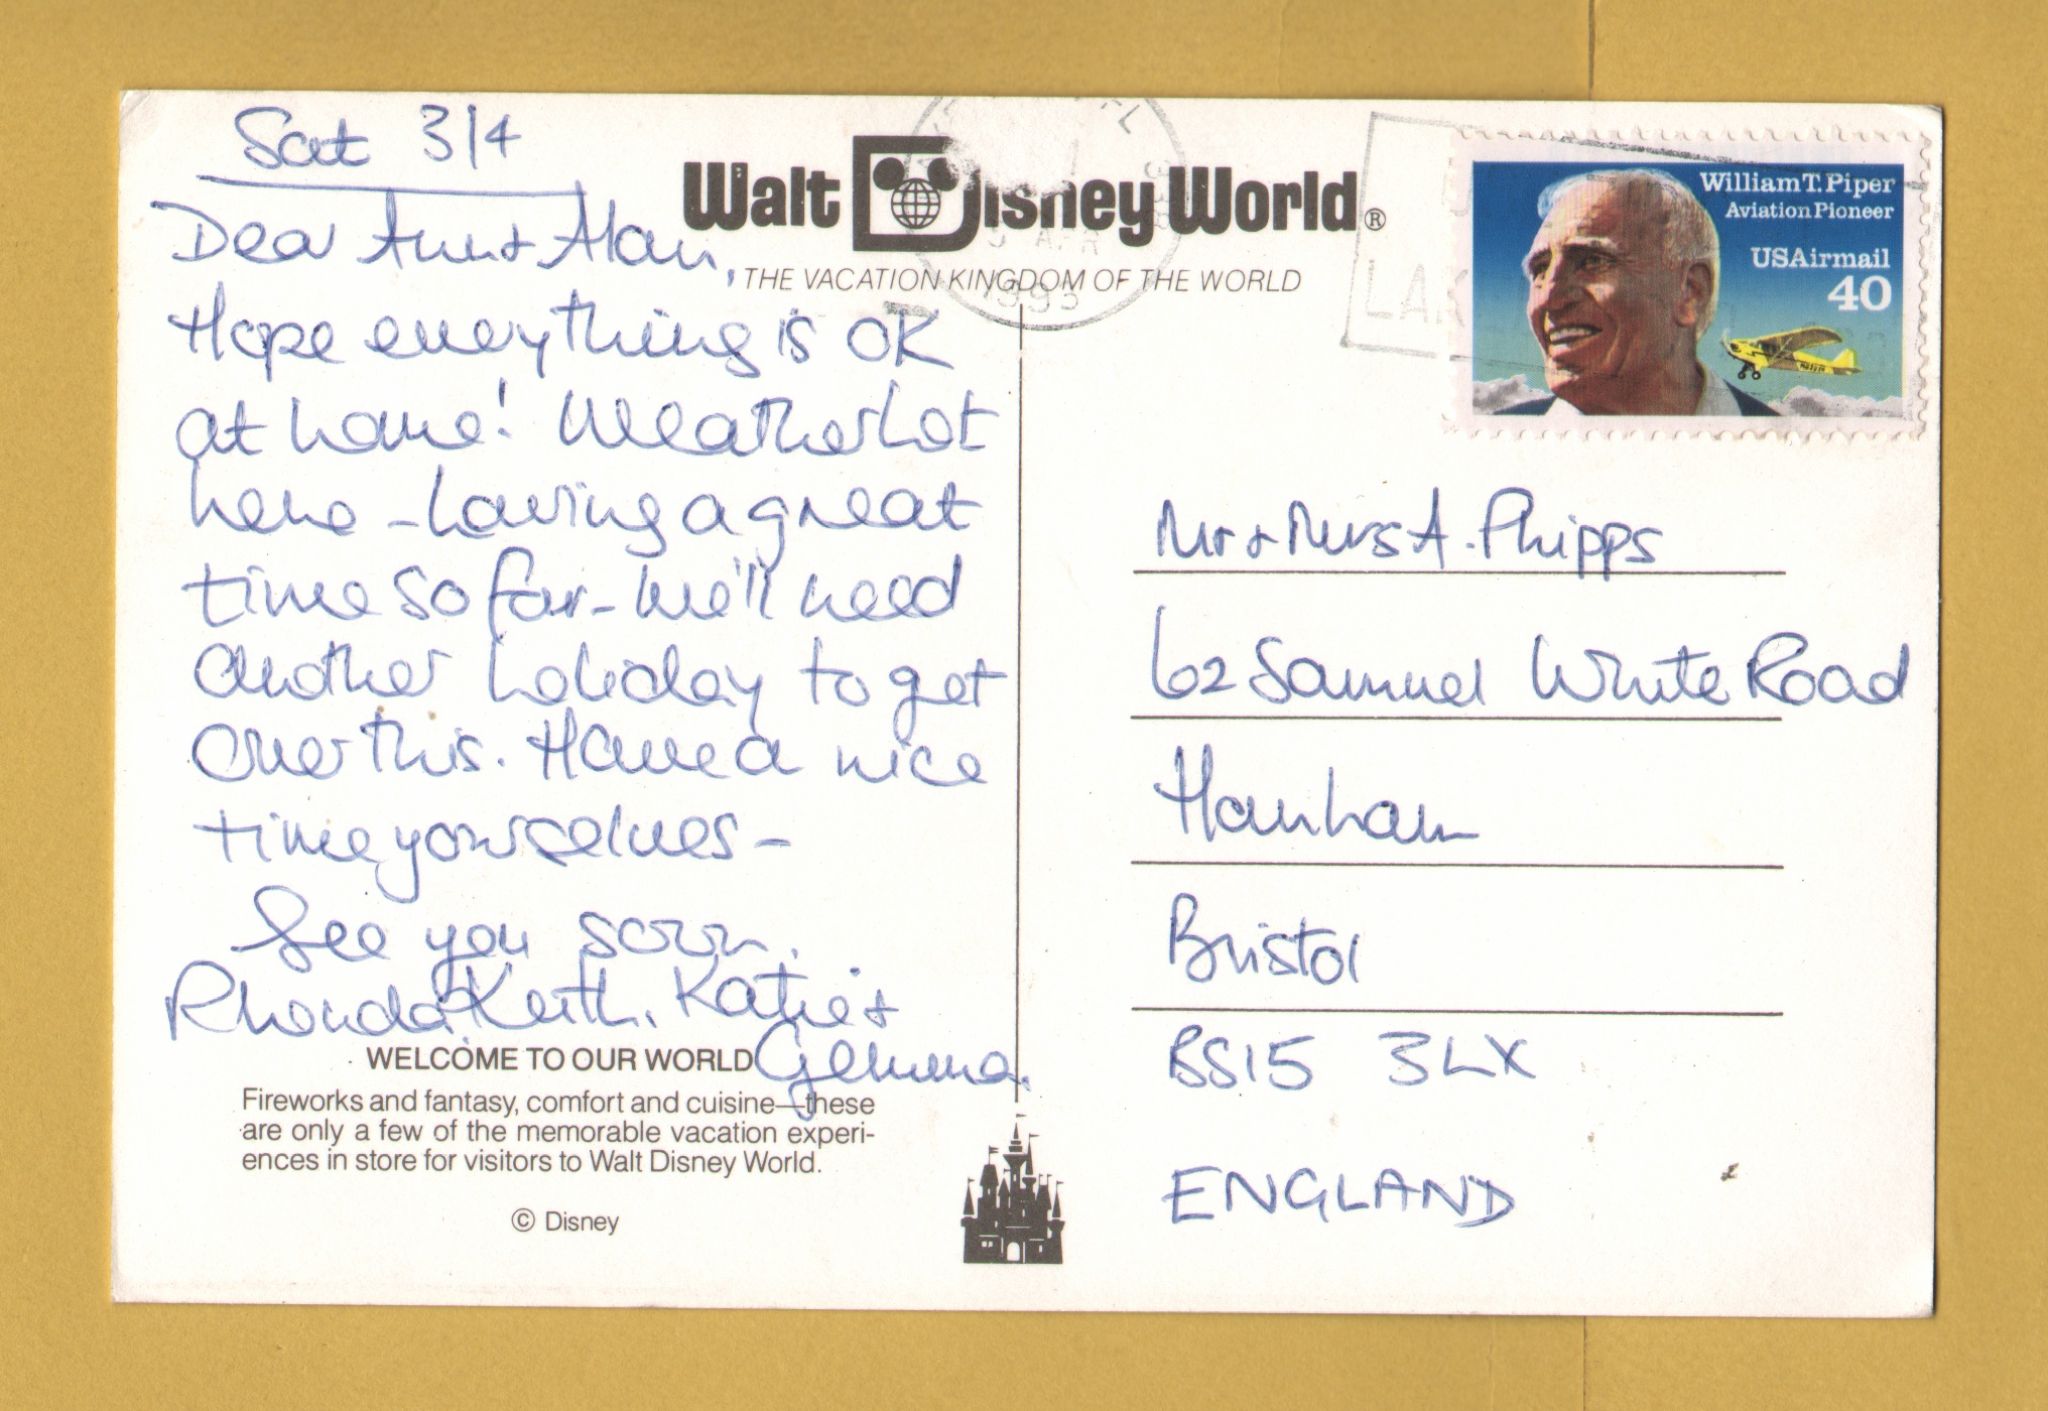 Sat 3/4
Dear Ann & Alan,
Hope everything is OK
at home! Weather hot
here - having a great
time so far - we'll need
another holiday to get
over this. Have a nice
time yourselves -
See you soon.
Rhonda, Keith, Katie &
Gemma.
WELCOME TO OUR WORLD
Fireworks and fantasy, comfort and cuisine—these
are only a few of the memorable vacation experi-
ences in store for visitors to Walt Disney World.
© Disney
Walt Disney World®
THE VACATION KINGDOM OF THE WORLD
FL
APR
William T. Piper
Aviation Pioneer
USAirmail
40
Mr & Mrs A. Phipps
62 Samuel White Road
Hanham
Bristol
BS15 3LX
ENGLAND